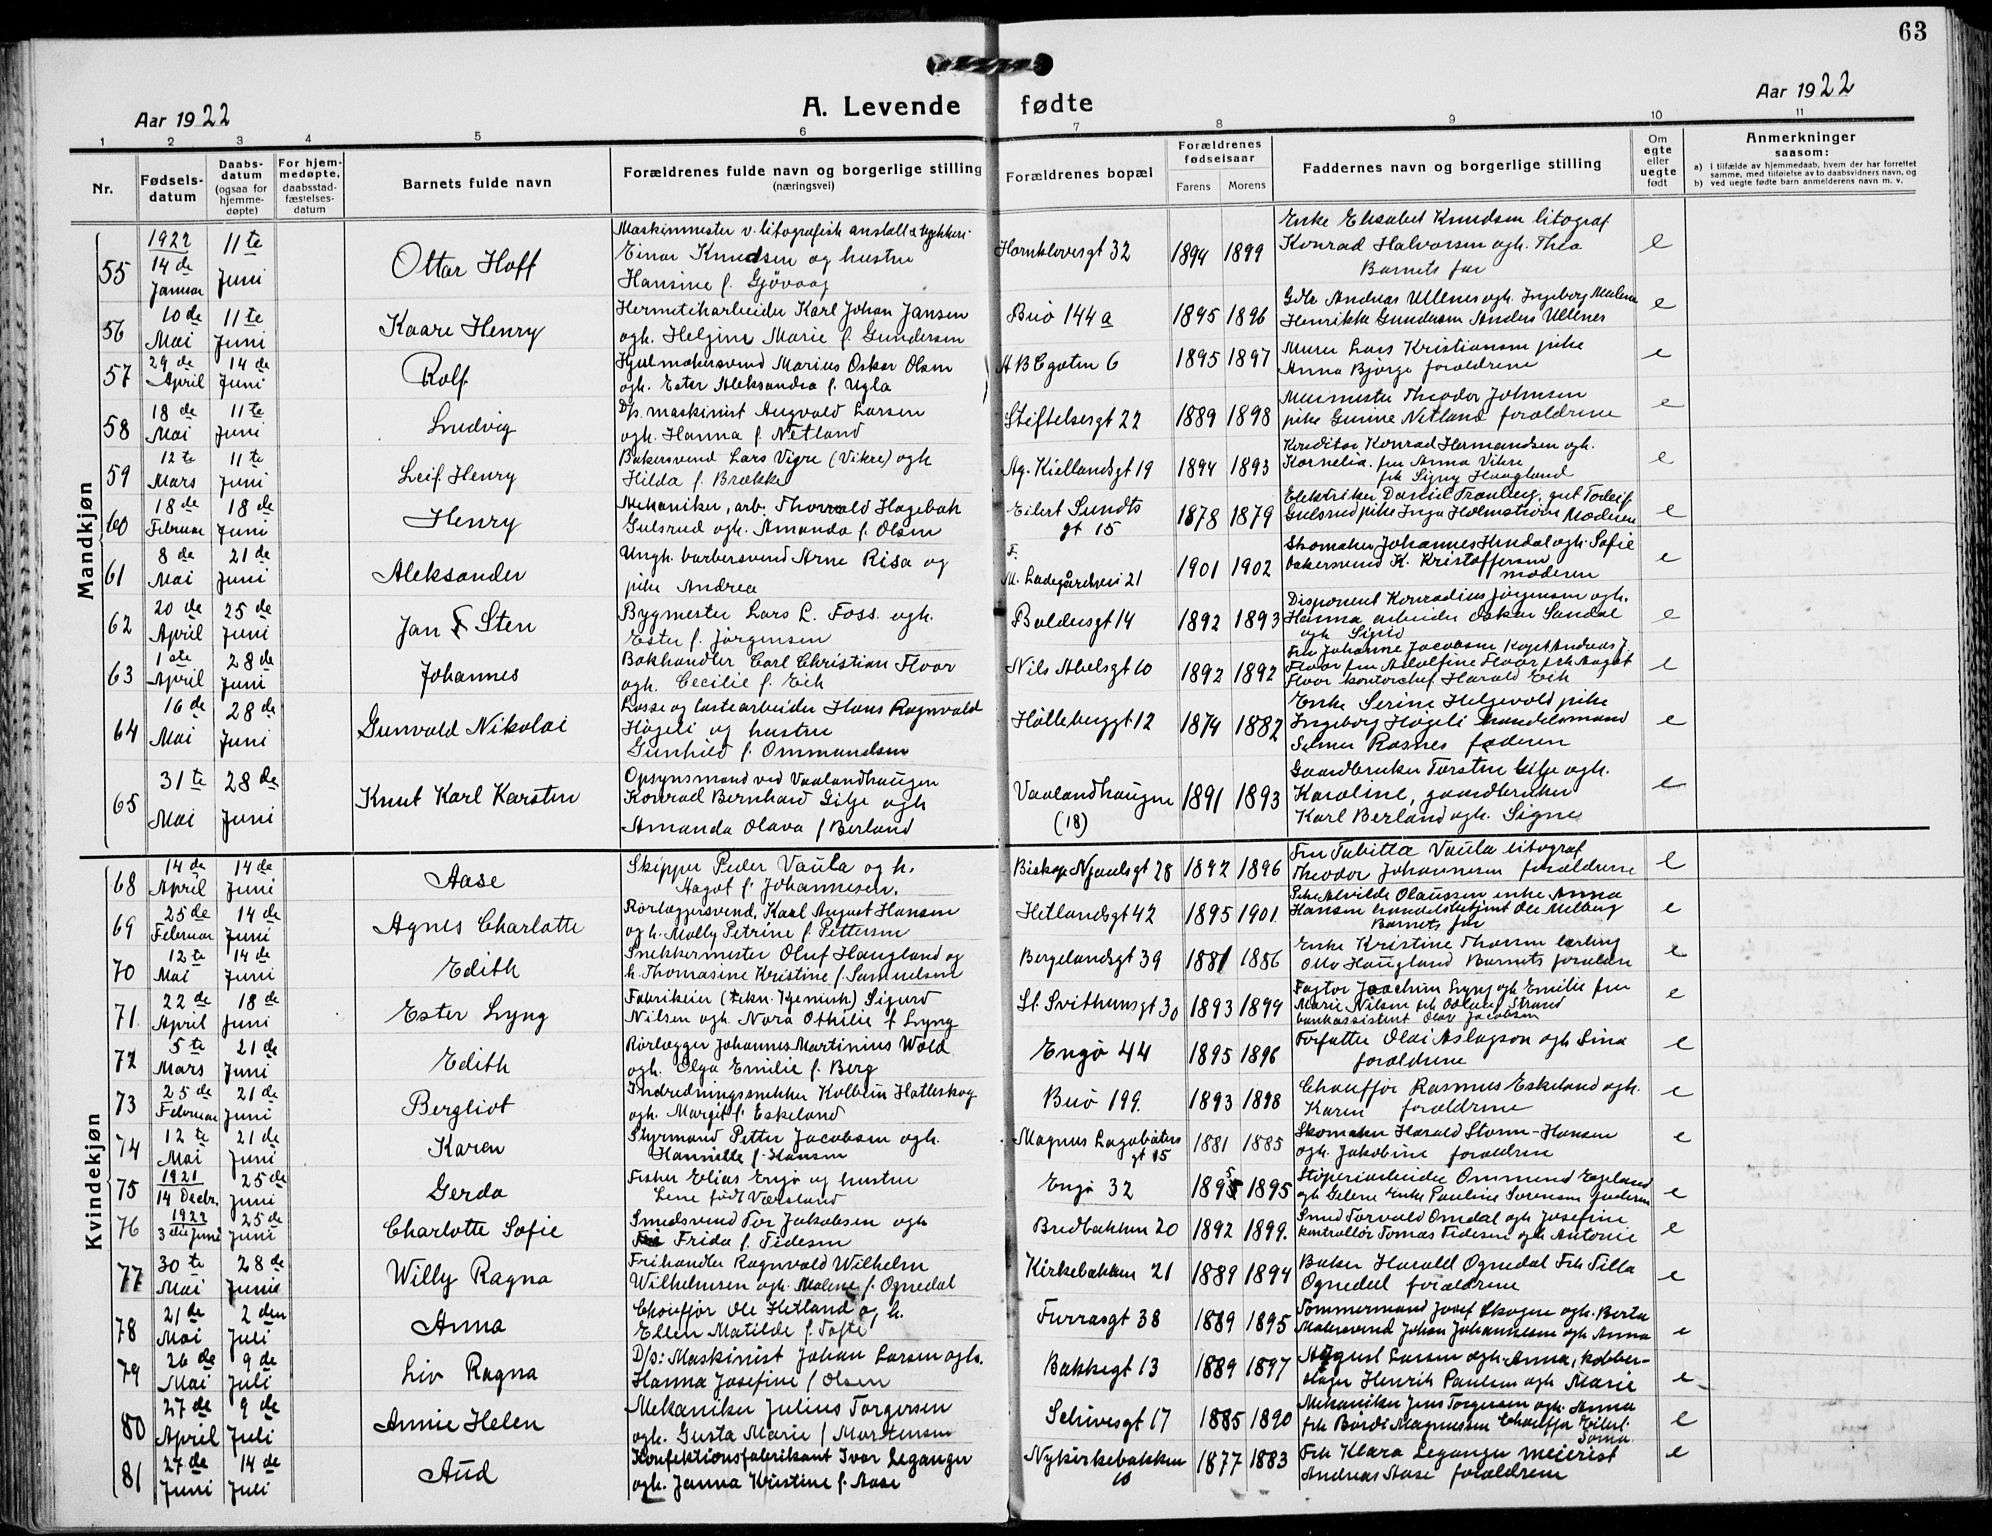 63
Aar 1922
A. Levende fødte
Aar 1922
1 2 3 4 5 6 7 8 9 10 11
Nr.
Fødsels-
datum
Daabs-
datum
(ogsaa for
hjemme-
døpte)
For hjem-
medøpte,
daabsstad-
fæstelses-
datum
Barnets fulde navn
Forældrenes fulde navn og borgerlige stilling
(næringsvei)
Forældrenes bopæl
Forældrenes
fødselsaar
Farens Morens
Faddernes navn og borgerlige stilling
Om
egte
eller
uegte
født
Anmerkninger
saasom:
a) I tilfælde av hjemmedaab, hvem der har forrettet
samme, med tilføielse av to daabsvidners navn, og
b) ved uegte fødte barn anmelderens navn m. v.
Mandkjøn
55 1922 14 de Januar 11 te Juni Ottar Hoff
Maskinmester v. litografisk anstalt & trykkeri
Einar Knudsen og hustru
Hansine f. Gjøvaag
Hornklovesgt 32 1894 1899
Enke Elisabet Knudsen litograf
Konrad Halvorsen ogh. Thea
Barnets far e
56 10 de Mai 11 te Juni Kaare Henry
Hermetikarbeider Karl Johan Jansen
ogh. Helgine Marie f. Gundersen
Buø 144 a 1895 1896
Gdbr Andreas Ullenes ogh. Ingeborg Malene
Henrikke Gundersen Anders Ullenes e
57 29 de April 14 de Juni Rolf
Hjulmakersvend Marius Oskar Olsen
ogh. Ester Aleksandra f. Ugla
ABCgaten 6 1895 1897
Murer Lars Kristiansen pike
Anna Bjorge forældrene e
58 18 de Mai 11 te Juni Ludvig
D/s. maskinist Augvald Larsen
ogh. Hanna f. Netland
Stiftelsesgt 22 1889 1898
Murmester Theodor Johnsen
pike Gurine Netland forældrene e
59 12 te Mars 11 te Juni Leif Henry
Bakersvend Lars Vigre (Vikre) ogh
Hilda f. Brække
Ag. Kiellandsgt 19 1894 1893
Konditor Konrad Hermandsen ogh.
Kornelia. fru Anna Vikre
frk Signy Haugland e
60 18 de Februar 18 de Juni Henry
Mekaniker, arb. Thorvald Hagebak
Gulsrud ogh. Amanda f. Olsen
Eilert Sundts
gt 15 1878 1879
Elektriker Daniel Tranberg, gut Torleif
Gulsrud pike Inga Holmstrøm Moderen e
61 8 de Mai 21 de Juni Aleksander
Ungk. barbersvend Arne Risa og
pike Andrea
F.
M. Ladegårdsvei 21 1901 1902
Skomaker Johannes Hindal ogh. Sofie
bakersvend K. Kristoffersen
moderen e
62 20 de April 25 de Juni Jan Sten
Bygmester Lars L. Foss. ogh.
Ester f. Jørgensen
Baldersgt 14 1892 1893
Disponent Konradius Jørgensen ogh.
Hanna arbeider Oskar Sandal
ogh Sigrid e
63 1 ste April 28 de Juni Johannes
Bokhandler Carl Christian Floor
ogh. Cecilie f. Eik
Nils Abelsgt 10 1892 1892
Fru Johanne Jacobsen Kapt Andreas J.
Floor fru Adolfine Floor frk Aagot
Floor kontorchef Harald Eik e
64 16 de Mai 28 de Juni Gunvald Nikolai
Losse og lastearbeider Hans Ragnvald
Høgeli og hustru
Gunhild f. Ommundsen
Hølleberggt 12 1874 1882
Enke Serine Helgevold pike
Ingeborg Høgeli handelsmand
Selmer Rasnes faderen e
65 31 te Mai 28 de Juni Knut Karl Karsten
Opsynsmand ved Vaalandhaugen
Konrad Bernhard Gilje ogh
Amanda Olava f Berland
Vaalandhaugen
(18) 1891 1893
Gaardbruker Torsten Gilje ogh.
Karoline, gaardbruker
Karl Berland ogh. Signe e
Kvindekjøn
68 14 de April 14 de Juni Aase
Skipper Peder Vaula og h.
Aagot f. Johannesen.
Biskop Njaulsgt 28 1892 1896
Fru Tabitta Vaula litograf
Theodor Johannesen forældrene e
69 25 de Februar 14 de Juni Agnes Charlotte
Rørlæggersvend, Karl August Hansen
og h. Molly Petrine f. Pettersen
Hetlandsgt 42 1895 1901
Pike Alvilde Olaussen enke Anna
Hansen handelsbetjent Ole Melberg
Barnets far e
70 12 te Mai 14 de Juni Edith
Snekkermester Oluf Haugland og
h. Thomasine Kristine f. Samuelsen
Bergelandsgt 39 1881 1886
Enke Kristine Thorsen lærling
Otto Haugland Barnets forældre e
71 22 de April 18 de Juni Ester Lyng
Fabrikeier (tekn. Kjemisk) Sigurd
Nilsen ogh. Nora Othilie f Lyng
St. Svithunsgt 30 1893 1899
Faktor Joachim Lyng ogh Emilie fru
Marie Nilsen frk Aslaug Strand
bankassistent Olav Jacobsen e
72 5 te Mars 21 de Juni Edith
Rørlægger Johannes Martinius Wold
ogh. Olga Emilie f. Berg
Engø 44 1895 1896
Forfatter Olai Aslagson ogh Sina
forældrene e
73 25 de Februar 21 de Juni Bergliot
Indredningssnekker Kolbein Hatleskog
ogh. Margit f. Eskeland
Buø 199. 1893 1898
Chauffør Rasmus Eskeland ogh.
Karen forældrene e
74 12 te Mai 21 de Juni Karen
Styrmand Petter Jacobsen ogh.
Hannette f. Hansen
Magnus Lagabøters
gt 15 1881 1885
Skomaker Harald Storm-Hansen
ogh. Jakobine forældrene e
75 1921 14 Decbr. 25 de Juni Gerda
Fisker Elias Engø og hustru
Lene født Værsland
Engø 32 1895 1895
Støperiarbeider Ommund Egeland
ogh Gelene Enke Pauline Sørensen faderen e
76 1922 3 die Juni 25 de Juni Charlotte Sofie
Smedsvend Tor Jakobsen ogh
Frida f. Tidesen
Bredbakken 20 1892 1899.
Smed Torvald Omdal ogh Josefine
kontrollør Tomas Tidesen ogh Antonie e
77 30 te Mai 28 de Juni Willy Ragna
Frihandler Ragnvald Wilhelm
Wilhelmsen ogh. Malene f. Ognedal
Kirkebakken 21 1889 1894
Baker Harald Ognedal Frk Tilla
Ognedal forældrene e
78 21 de Mai 2 den Juli Anna
Chauffør Ole Hetland og h.
Ellen Matilde f. Tofte
Furrasgt 38 1889 1895
Tømmermand Josef Skogen ogh. Berta
Malersvend Johan Johannesen ogh Anna e
79 26 de Mai 9 de Juli Liv Ragna
D/s: Maskinist Johan Larsen ogh.
Hanna Josefine f Olsen
Bakkegt 13 1889 1897
August Larsen ogh. Anna, kobber-
slager Henrik Paulsen ogh Marie e
80 27 de April 9 de Juli Annie Helen
Mekaniker Julius Torgersen
ogh. Gusta Marie f Mortensen
Sehivesgt 17 1885 1890
Mekaniker Jens Torgersen ogh. Anna
frk Bordi Magnussen Chauffør Eilert
Soma e
81 27 de Juni 14 de Juli Aud
Konfektionsfabrikant Ivar Leganger
ogh. Janna Kristine f. Aase
Nykirkebakken
10 1877 1883
Frk Klara Leganger meierist
Andreas Aase forældrene e